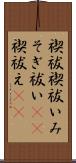 禊祓禊祓いみ
そぎ祓い((
禊祓え((